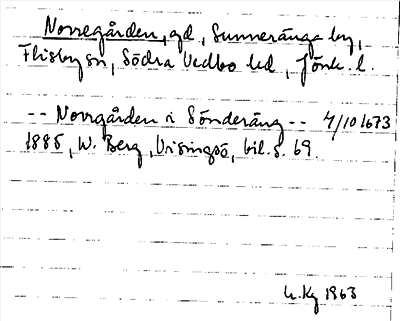 Norregården, gd, Sunneränga by,
Flisby sn, Södra Vedbo hd, Jönk. l.
-- Norrgården i Sönderäng -- 4/10 1673
1885, W. Berg, Visingsö, bil. s. 69.
1963